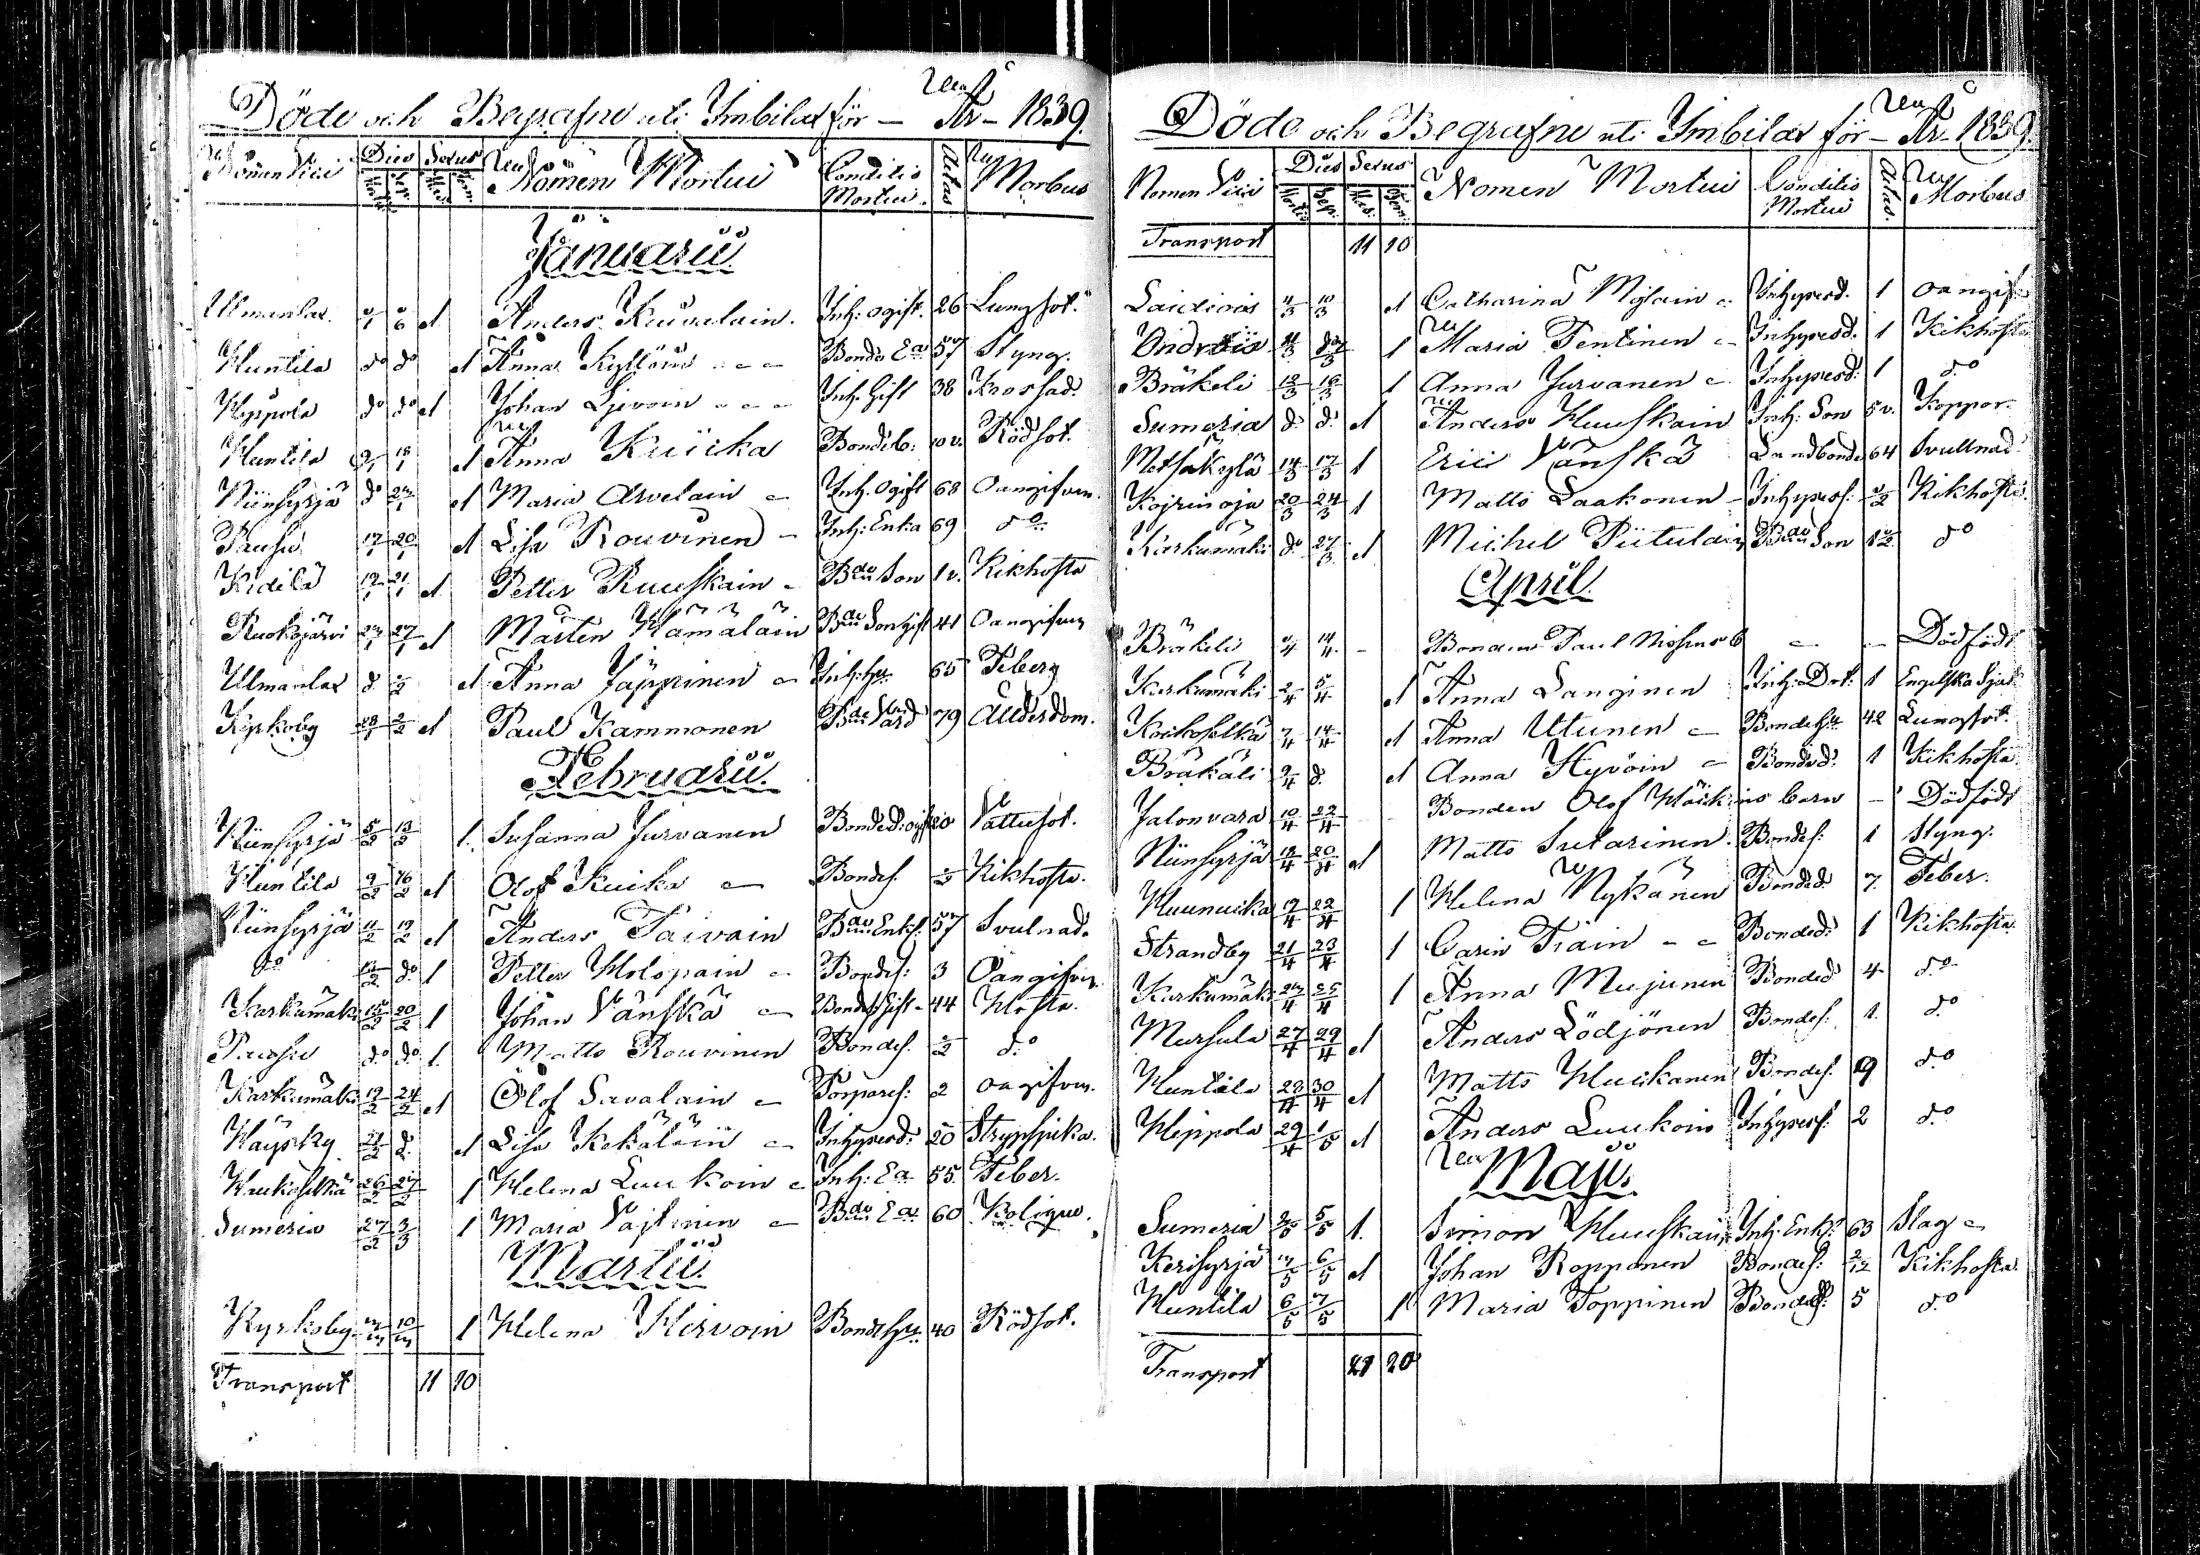 Döde och Begrafne uti Imbilax för År 1839.
Nomen Vici Dies Mortis Sep. Sexus Mas. Fem. Nomen Mortui Conditio Mortui. Ætas Morbus
Januarii
Ulmanlax 2/1 6/1 1 Anders Kuivalain. Inh: ogift. 26 Lungsot.
Huntila do do 1 Anna Kyllöin Bonde Ea 57 Styng.
Hyppola do do 1 Johan Ljevoin Inh. Gift 38 Krossad.
Huntila 9/1 18/1 1 Anna Kuicka Bonded: 10 v. Rödsot.
Niinsyrjä do 1 Maria Arvelain Inh. Ogift 68 Oangifven.
Pausu 17/1 20/1 1 Lisa Rouvinen Inh: Enka 69 do
Kidilä 19/1 21/1 1 Petter Ruuskain Bde Son 1 v. Kikhosta
Ruokojärvi 27/1 1 Mårten Hämäläin Bde Son gift 41 Oangifven
Ulmanlax d. 1 Anna Jäppinen Inh: hu 65 Feberg
Kyrkoby 28/1 2/2 1 Paul Kammonen Bde Fard 79 Ålderdom.
Februarii.
Niinsyrjä 5/2 13/2 1. Susanna Jurvanen Bonded: ogift 20 Vattusot.
Huntila 9/2 16/2 1 Olof Kuika Bondes. Kikhosta.
Niinsyrjä 11/2 19/2 1 Anders Päiväin Bde Enkl: 57 Svulnad.
do do 1 Petter Holopain Bondes: 3 Oangifven
Karkumäki 15/2 20/2 1 Johan Vänskä Bondes Gift 44 Hosta.
Pausu do do 1. Matts Rouvinen Bondes. do
Karkumäki 19/2 24/2 1 Olof Savolain Torpares: 2 oangifven.
Häysky 21/2 d. 1 Lisa Kekäläin Inhysesd: 20 Strypsjuka.
Haukaselkä 26/2 27/2 1 Helena Luukoin Inh: Ea 55. Feber.
Sumeria 27/2 3/3 1 Maria Vajtinen Bde Ea 60 Kolique.
Martii.
Kyrkoby 10/3 1 Helena Hirvoin Bondehu 40 Rödsot.
Transport 11 10
Döde och Begrafne uti Imbilax för År 1839.
Nomen Vici Dies Mortis Sep: Sexus Mas: Fem: Nomen Mortui Conditio Mortui Ætas. Morbus
Transport 11 10
10/3 1 Catharina Mylain Inhysesd. 1 oangif
1 Maria Pentinen Inhysesd. 1 Kikhosta
Bräkeli 12/3 18/3 1 Anna Jurvanen Inhysesd: 1 do
Sumeria d: d: 1 Anders Huuskain Inh: Son 5 v. Koppor.
Metsäkylä 14/3 17/3 1 Eric Vänskä Landbonde 64 Svullnad
Kojrinoja 20/3 24/3 1 Matts Laakonen Inhyses: Kikhosta
Karkumäki do 27/3 1 Michel Piitulain Bde Son do
April.
Bräkeli 14/4 Bondens Paul Nissens b Dödfödt
Karkumäki 2/4 5/4 1 Anna Langinen Inh: Dot: 1 Engelska Sjuk
Korkoselkä 7/4 14/4 1 Anna Utunen Bondehu 42 Lungsot.
Bräkäli 9/4 d. 1 Anna Hyvöin Bonded: 1 Kikhosta
Jalonvara 10/4 22/4 Bonden Olof barn Dödfödt
Niinsyrjä 18/4 20/4 1 Matts Sutarinen. Bondes: 1 Styng.
Huunucka 19/4 22/4 1 Helena Nykänen Bonded. 7. Feber.
Strandby 21/4 23/4 1 Carin Träin Bonded: 1 Kikhosta
Karkumäki 25/4 1 Anna Mujunen Bonded 4 do
Mursula 27/4 29/4 1 Anders Lödjönen Bondes: 1. do
Huntila 28/4 30/4 1 Matts Huckanen Bondes. 9 do
Heppola 29/4 1/5 1 Anders Luukoin Inhyses: 2 do
Maji.
Sumeria 2/5 5/5 1. Simon Huuskain Inh: Enkl: 63 Slag
Kerisyrjä 6/5 1 Johan Ropponen Bondes: 2/12 Kikhosta
Huntila 6/5 7/5 1 Maria Toppinen 5 do
Transport 21 20